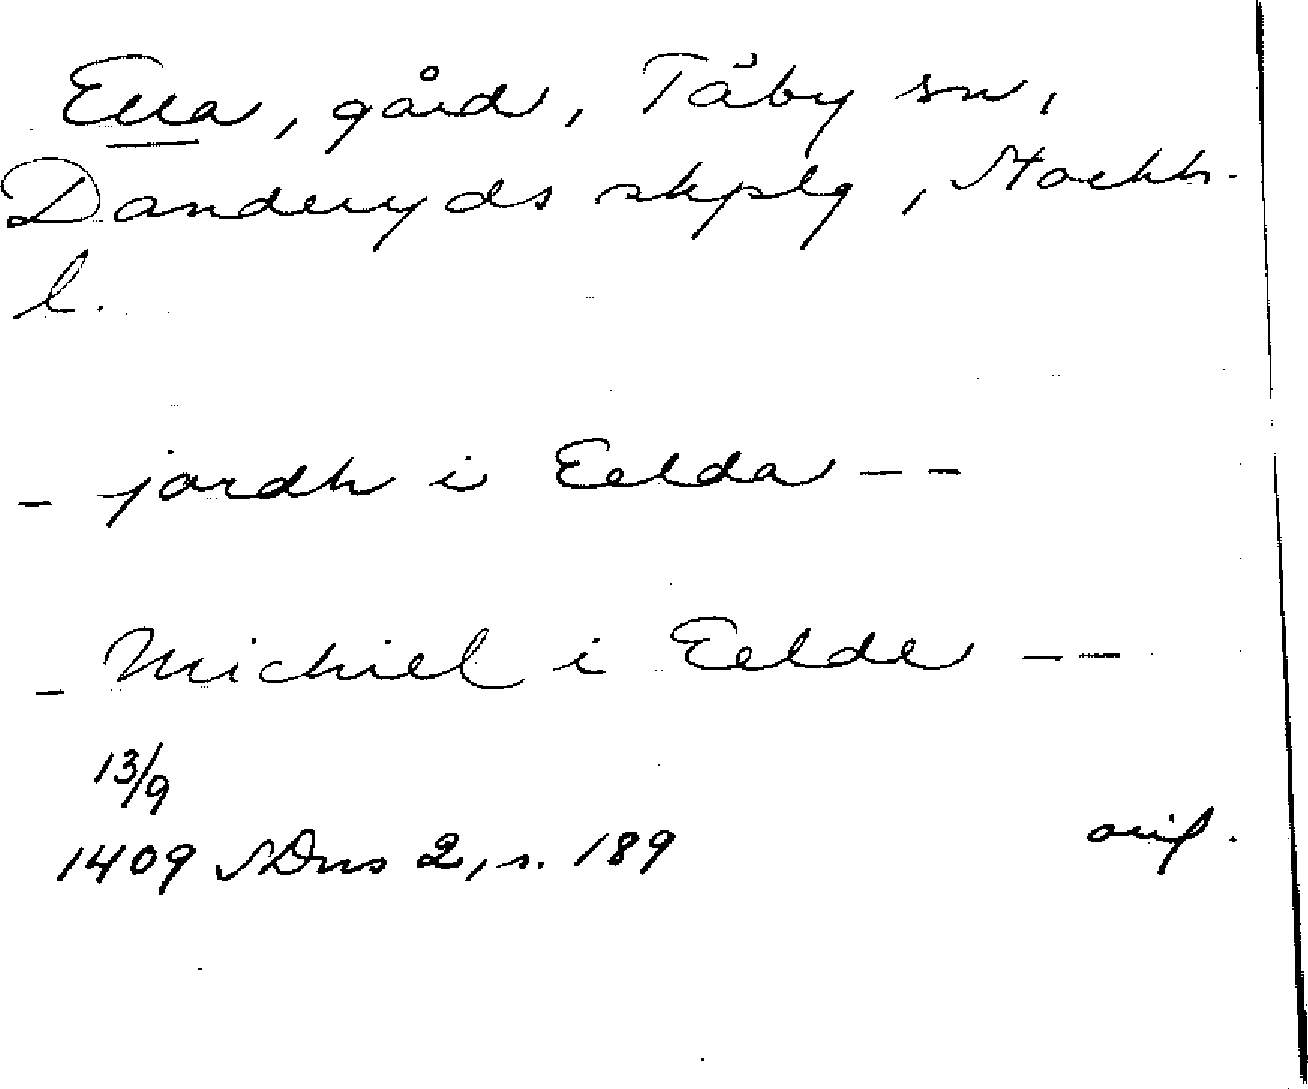 Ella, gård, Täby sn,
Danderyds skplg, Stockh.
l.
- jordh i Eelda - -
- Michiel i Eelde - -
13/9
1409 SDns 2, s. 189 orig.